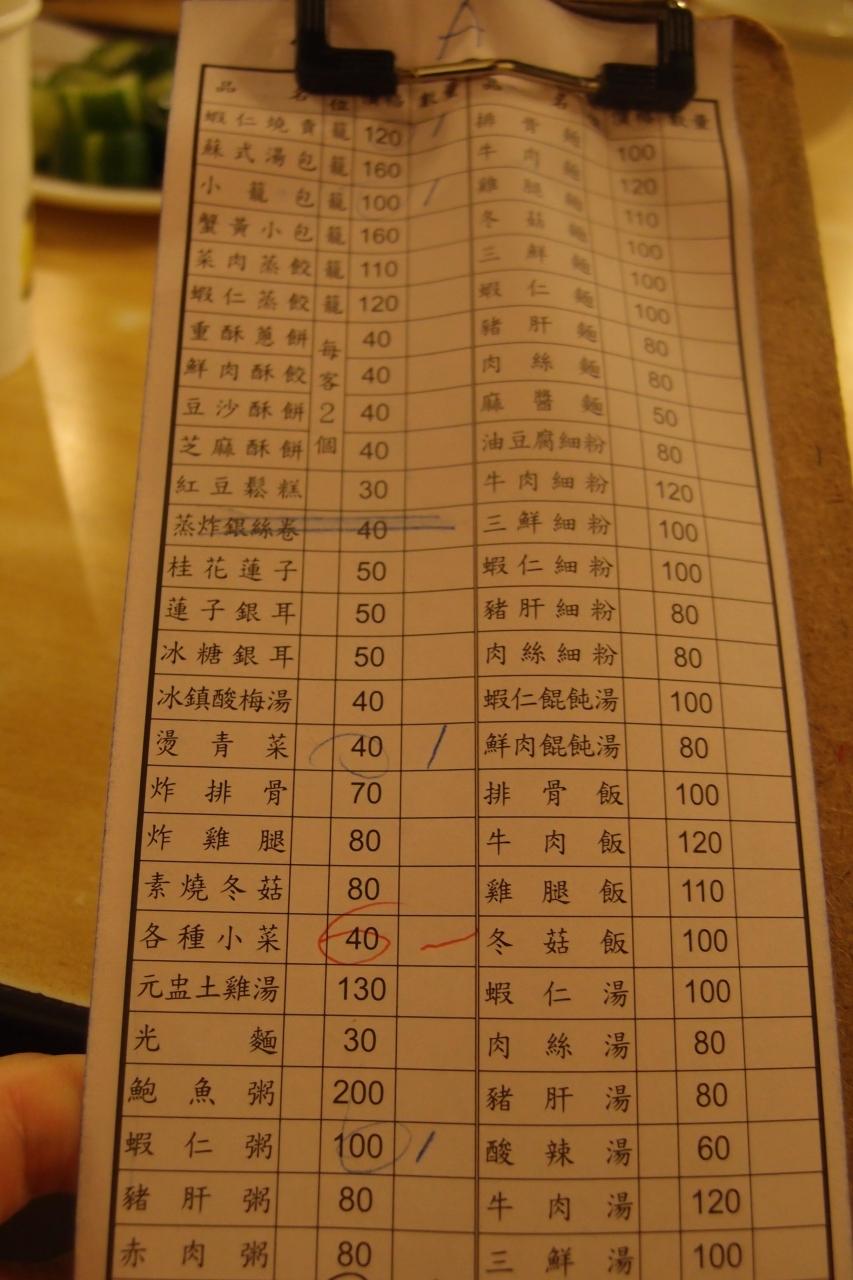 A
品 名 位 價格 數量 品 名 價格 數量
蝦仁燒賣 籠 120 / 排骨麵 100
蘇式湯包 籠 160 牛肉麵 120
小籠包 籠 100 / 雞腿麵 110
蟹黃小包 籠 160 冬菇麵 100
菜肉蒸餃 籠 110 三鮮麵 100
蝦仁蒸餃 籠 120 蝦仁麵 100
重酥蔥餅 每客2個 40 豬肝麵 80
鮮肉酥餃 40 肉絲麵 80
豆沙酥餅 40 麻醬麵 50
芝麻酥餅 40 油豆腐細粉 80
紅豆鬆糕 30 牛肉細粉 120
蒸炸銀絲卷 40 三鮮細粉 100
桂花蓮子 50 蝦仁細粉 100
蓮子銀耳 50 豬肝細粉 80
冰糖銀耳 50 肉絲細粉 80
冰鎮酸梅湯 40 蝦仁餛飩湯 100
燙青菜 40 / 鮮肉餛飩湯 80
炸排骨 70 排骨飯 100
炸雞腿 80 牛肉飯 120
素燒冬菇 80 雞腿飯 110
各種小菜 40 一 冬菇飯 100
元盅土雞湯 130 蝦仁湯 100
光麵 30 肉絲湯 80
鮑魚粥 200 豬肝湯 80
蝦仁粥 100 / 酸辣湯 60
豬肝粥 80 牛肉湯 120
赤肉粥 80 三鮮湯 100